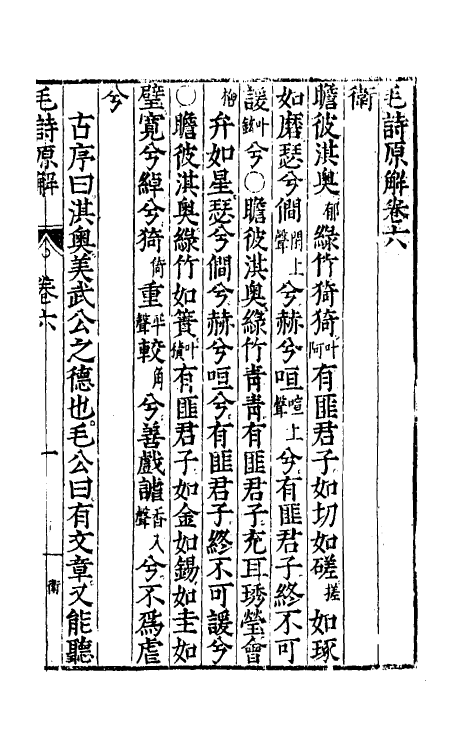 毛詩原解卷六
衛
瞻彼淇奧郁綠竹猗猗叶阿有匪君子如切如磋搓如琢
如磨瑟兮僩閒上聲兮赫兮咺喧上聲兮有匪君子終不可
諼叶兮○瞻彼淇奧綠竹青青有匪君子充耳琇瑩會
弁如星瑟兮僩兮赫兮咺兮有匪君子終不可諼兮
○瞻彼淇奧綠竹如簀叶積有匪君子如金如錫如圭如
璧寬兮綽兮猗倚重平聲較角兮善戲謔香入聲兮不爲虐
兮
古序曰淇奧美武公之德也毛公曰有文章又能聽
毛詩原解 卷六 一 衛